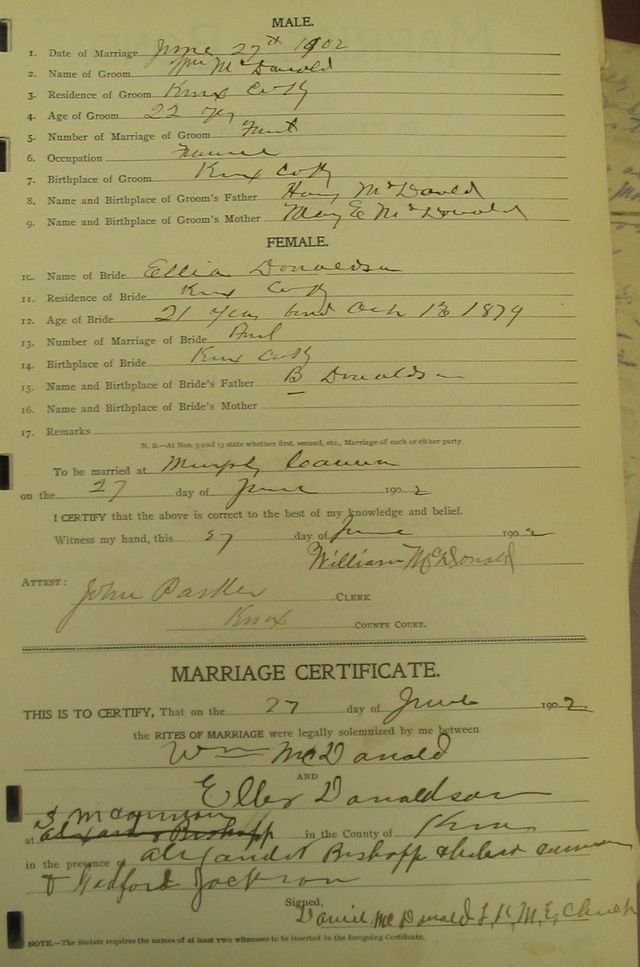 MALE.
1. Date of Marriage June 27th 1902
2. Name of Groom Wm McDonald
3. Residence of Groom Knox Co Ky
4. Age of Groom 22 yr
5. Number of Marriage of Groom First
6. Occupation Farmer
7. Birthplace of Groom Knox Co Ky
8. Name and Birthplace of Groom's Father McDonald
9. Name and Birthplace of Groom's Mother Mary E McDonald
FEMALE.
10. Name of Bride Donaldson
11. Residence of Bride Knox Co Ky
12. Age of Bride 21 years 1879
13. Number of Marriage of Bride First
14. Birthplace of Bride Knox Co Ky
15. Name and Birthplace of Bride's Father B Donaldson
16. Name and Birthplace of Bride's Mother
17. Remarks
N. B.—At Nos. 5 and 13 state whether first, second, etc., Marriage of each or either party.
To be married at Murphy
on the 27 day of June 1902
I CERTIFY that the above is correct to the best of my knowledge and belief.
Witness my hand, this 27 day of June 1902
William McDonald
ATTEST: John Parker CLERK
Knox COUNTY COURT.
MARRIAGE CERTIFICATE.
THIS IS TO CERTIFY, That on the 27 day of June 1902
the RITES OF MARRIAGE were legally solemnized by me between
Wm McDonald
AND
Eller Donaldson
at Bishopp in the County of Knox
in the presence of Bishopp
& Jackson
Signed, Daniel McDonald M. E. Church
NOTE.—The Statute requires the names of at least TWO witnesses to be inserted in the foregoing Certificate.